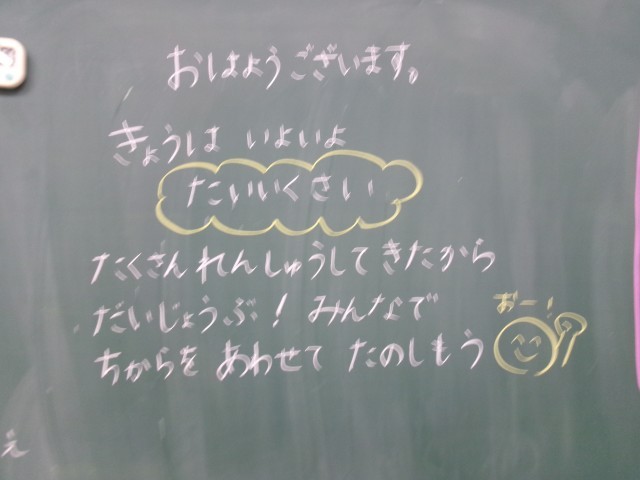 おはようございます。
きょうは いよいよ
たいいくさい
たくさんれんしゅうしてきたから
だいじょうぶ! みんなで
おー!
ちからを あわせて たのしもう
え